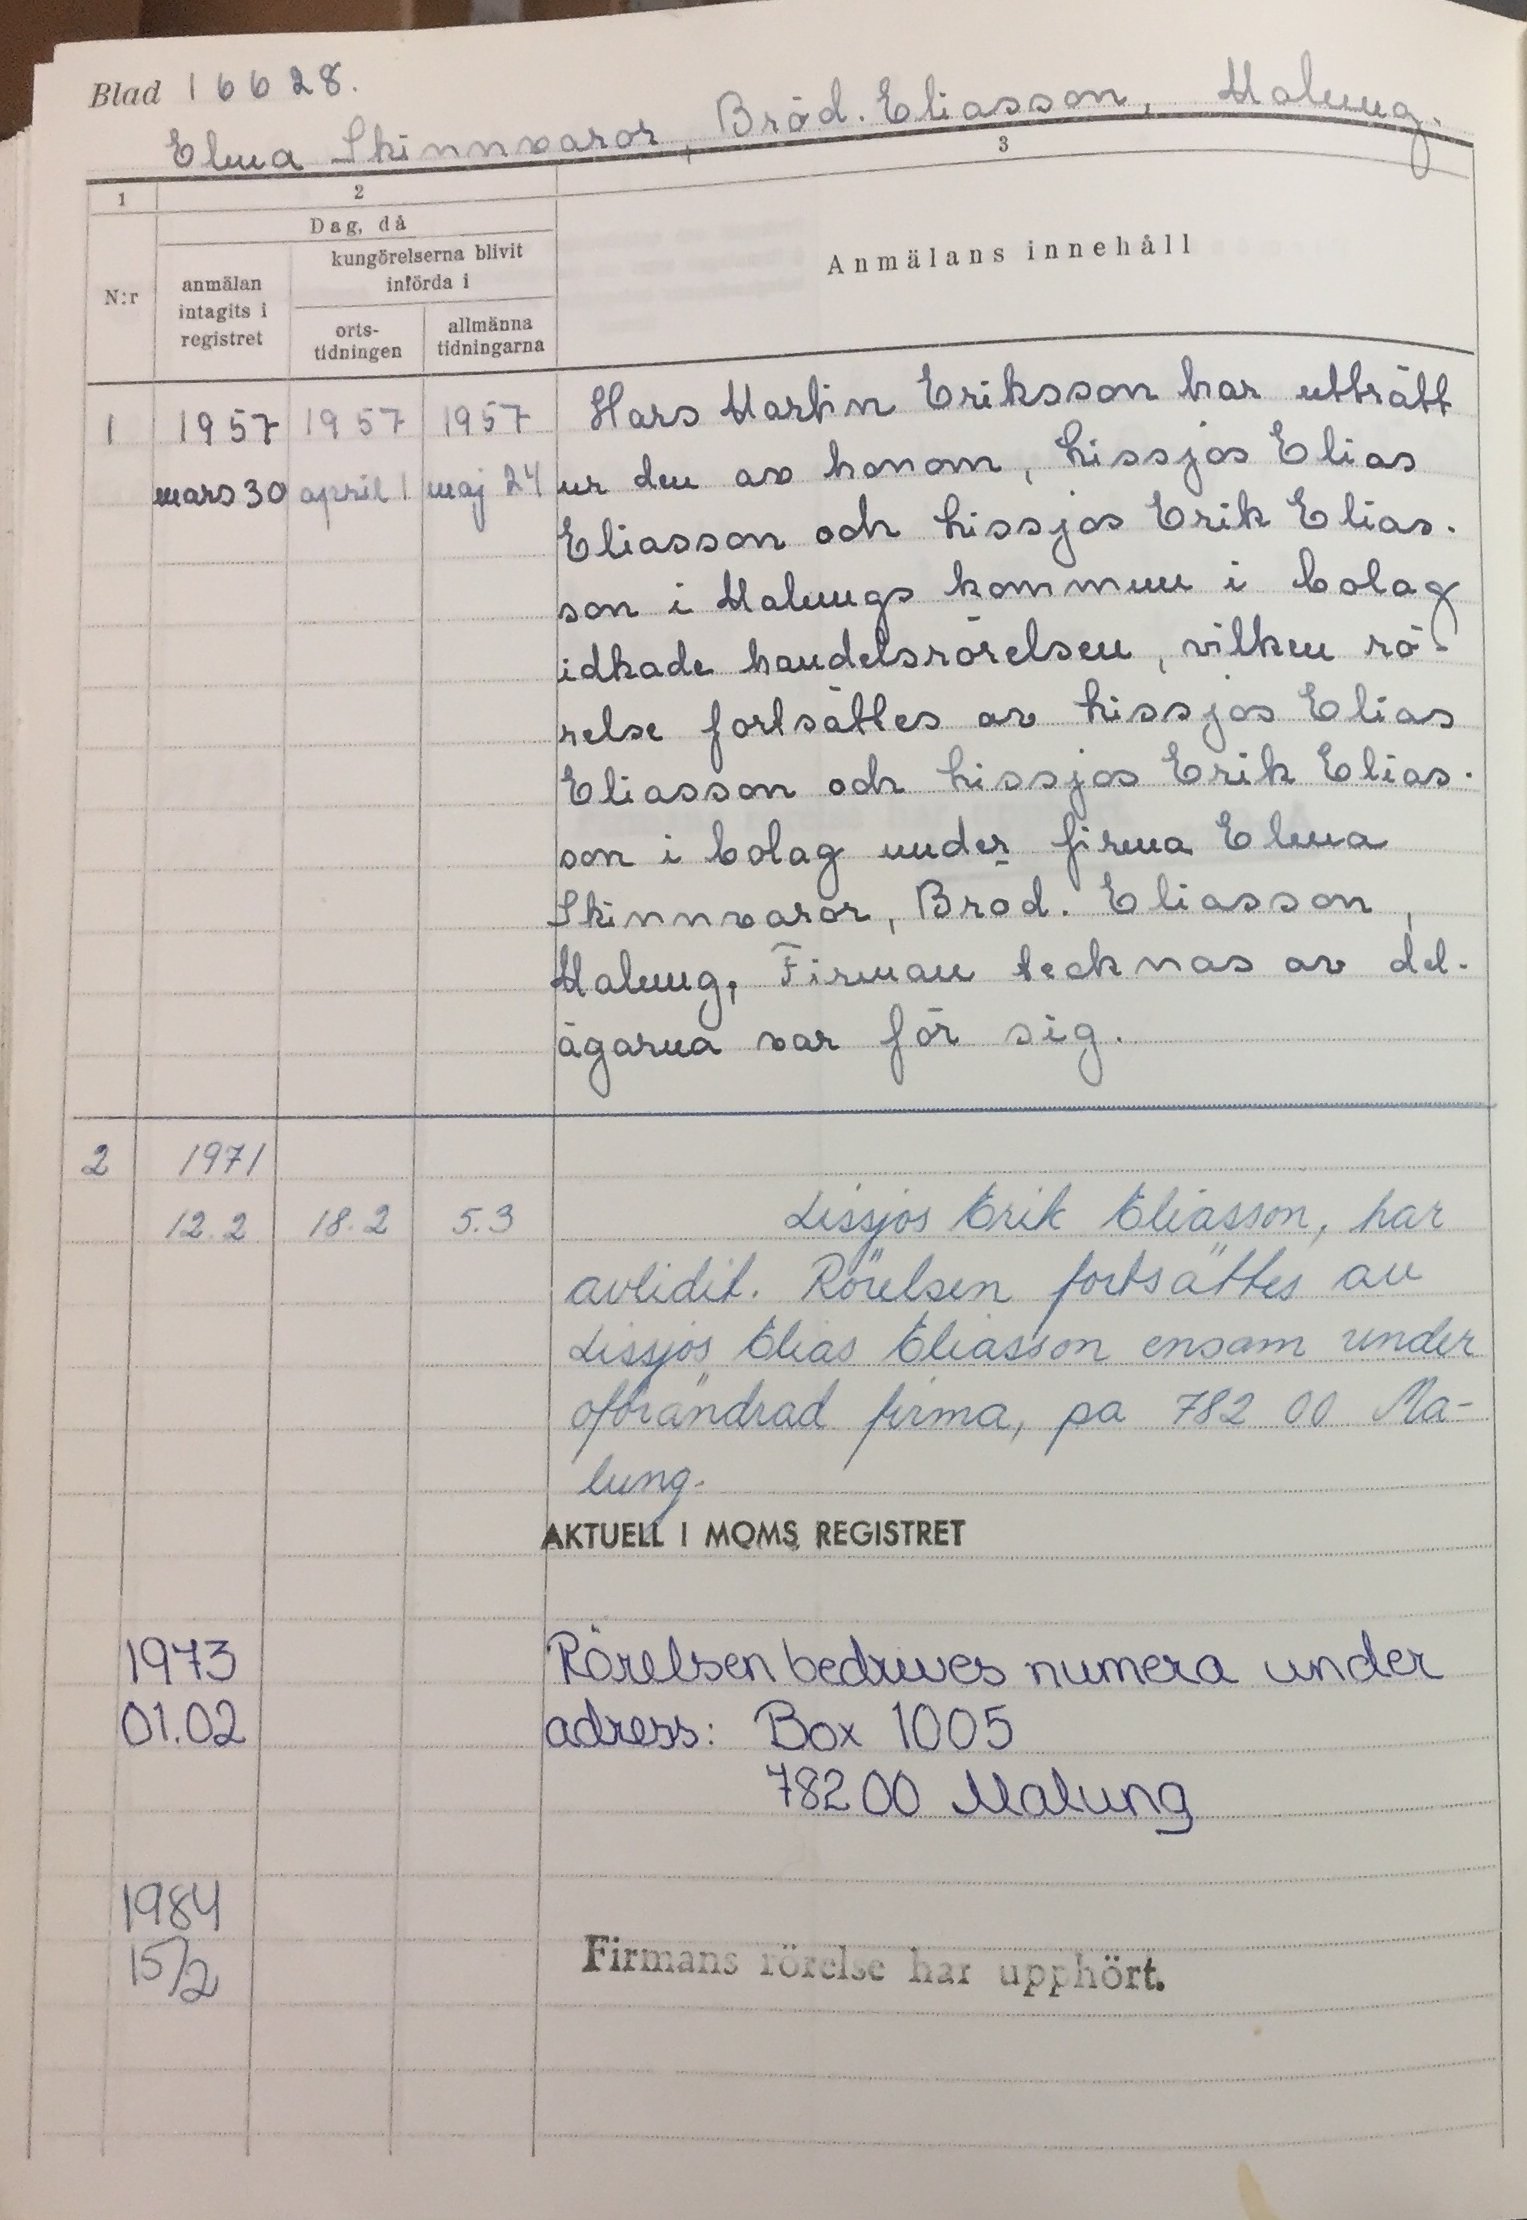 Blad 16628.
Elma Skinnvaror, Bröd. Eliasson, Malung.
1 2 3
Dag, då
kungörelserna blivit
införda i
N:r
anmälan
intagits i
registret
orts-
tidningen
allmänna
tidningarna
Anmälans innehåll
1 1957 1957 1957 Hars Martin Eriksson har utträtt
mars 30 april 1 maj 24 ur den av honom, Lissjos Elias
Eliasson och Lissjos Erik Elias-
son i Malungs kommun i bolag
idkade handelsrörelsen, vilken rö-
relse fortsättes av Lissjos Elias
Eliasson och Lissjos Erik Elias-
son i bolag under firma Elma
Skinnvaror, Bröd. Eliasson,
Malung, Firman tecknas av del-
ägarna var för sig.
2 1971
12.2 18.2 5.3 Lissjos Erik Eliasson, har
avlidit. Rörelsen fortsättes av
Lissjos Elias Eliasson ensam under
oförändrad firma, pa 782 00 Ma-
lung.
AKTUELL I MOMS REGISTRET
1973 Rörelsen bedrives numera under
01.02 adress: Box 1005
782 00 Malung
1984
15/2 Firmans rörelse har upphört.